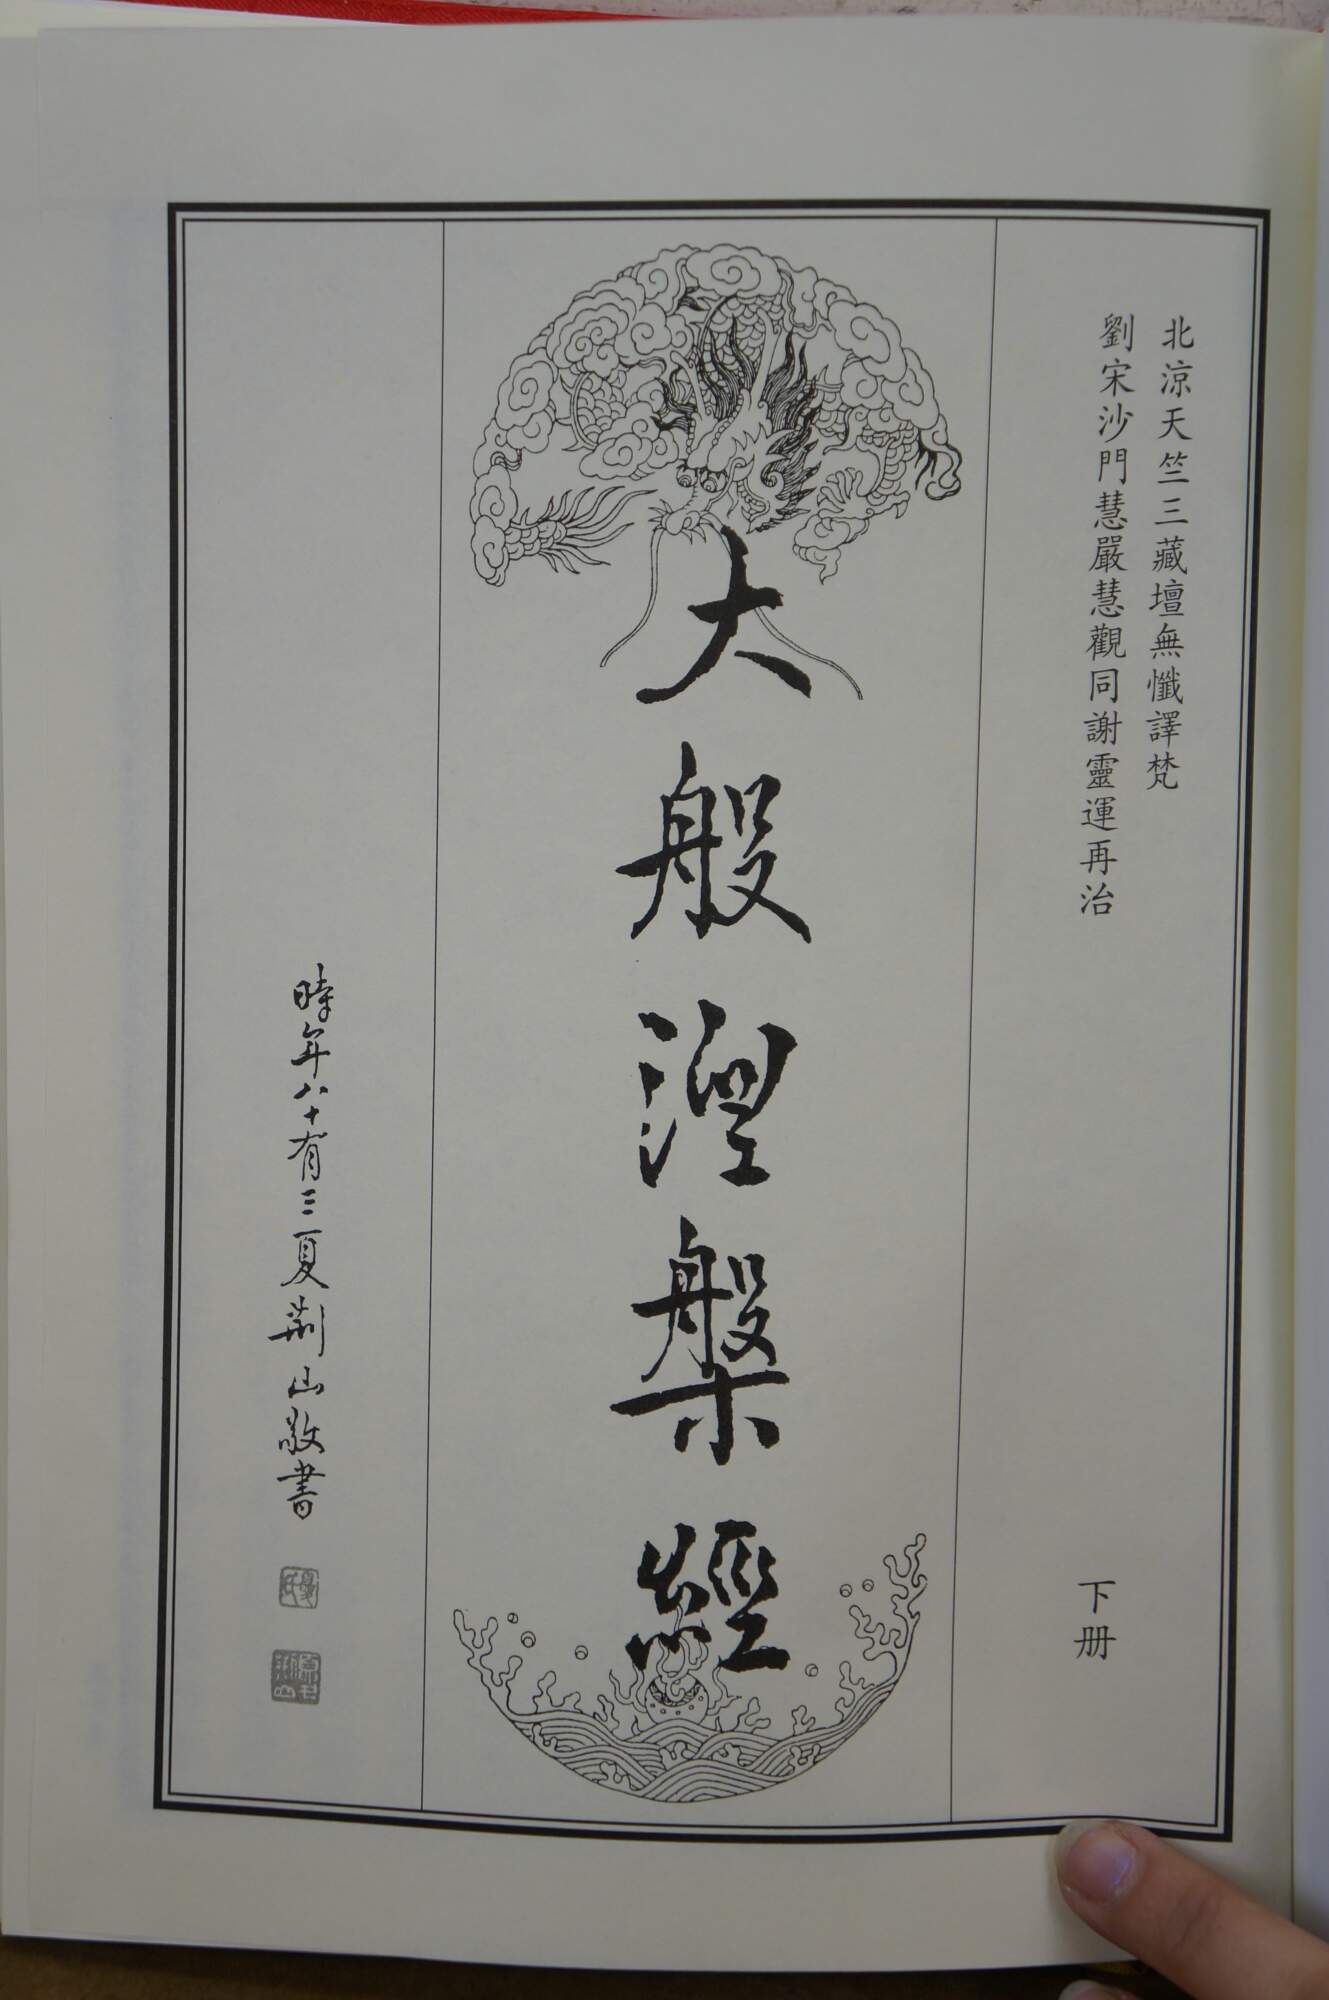 北涼天竺三藏壇無懺譯梵
劉宋沙門慧嚴慧觀同謝靈運再治
下册
大般涅槃經
時年八十有三夏荊山敬書